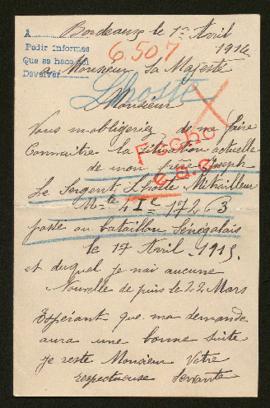 Bordeaux le 1er Avril
1916
A
Pedir informes
Que se haga del
Devolver
6507
a Monsieur Sa Majesté
Lhoste
Monsieur
Vous m'obligeriez de me faire
Connaitre la situation actuelle
de mon frère Joseph
Fichado
Le Sergent Lhoste Mitrailleur
Mle 17263
passé au bataillon Sénégalais
le 17 Avril 1915
et duquel je n'ai aucune
Nouvelle depuis le 22 Mars
Espérant que ma demande
aura une bonne suite
je reste Monsieur Votre
respectueuse Servante